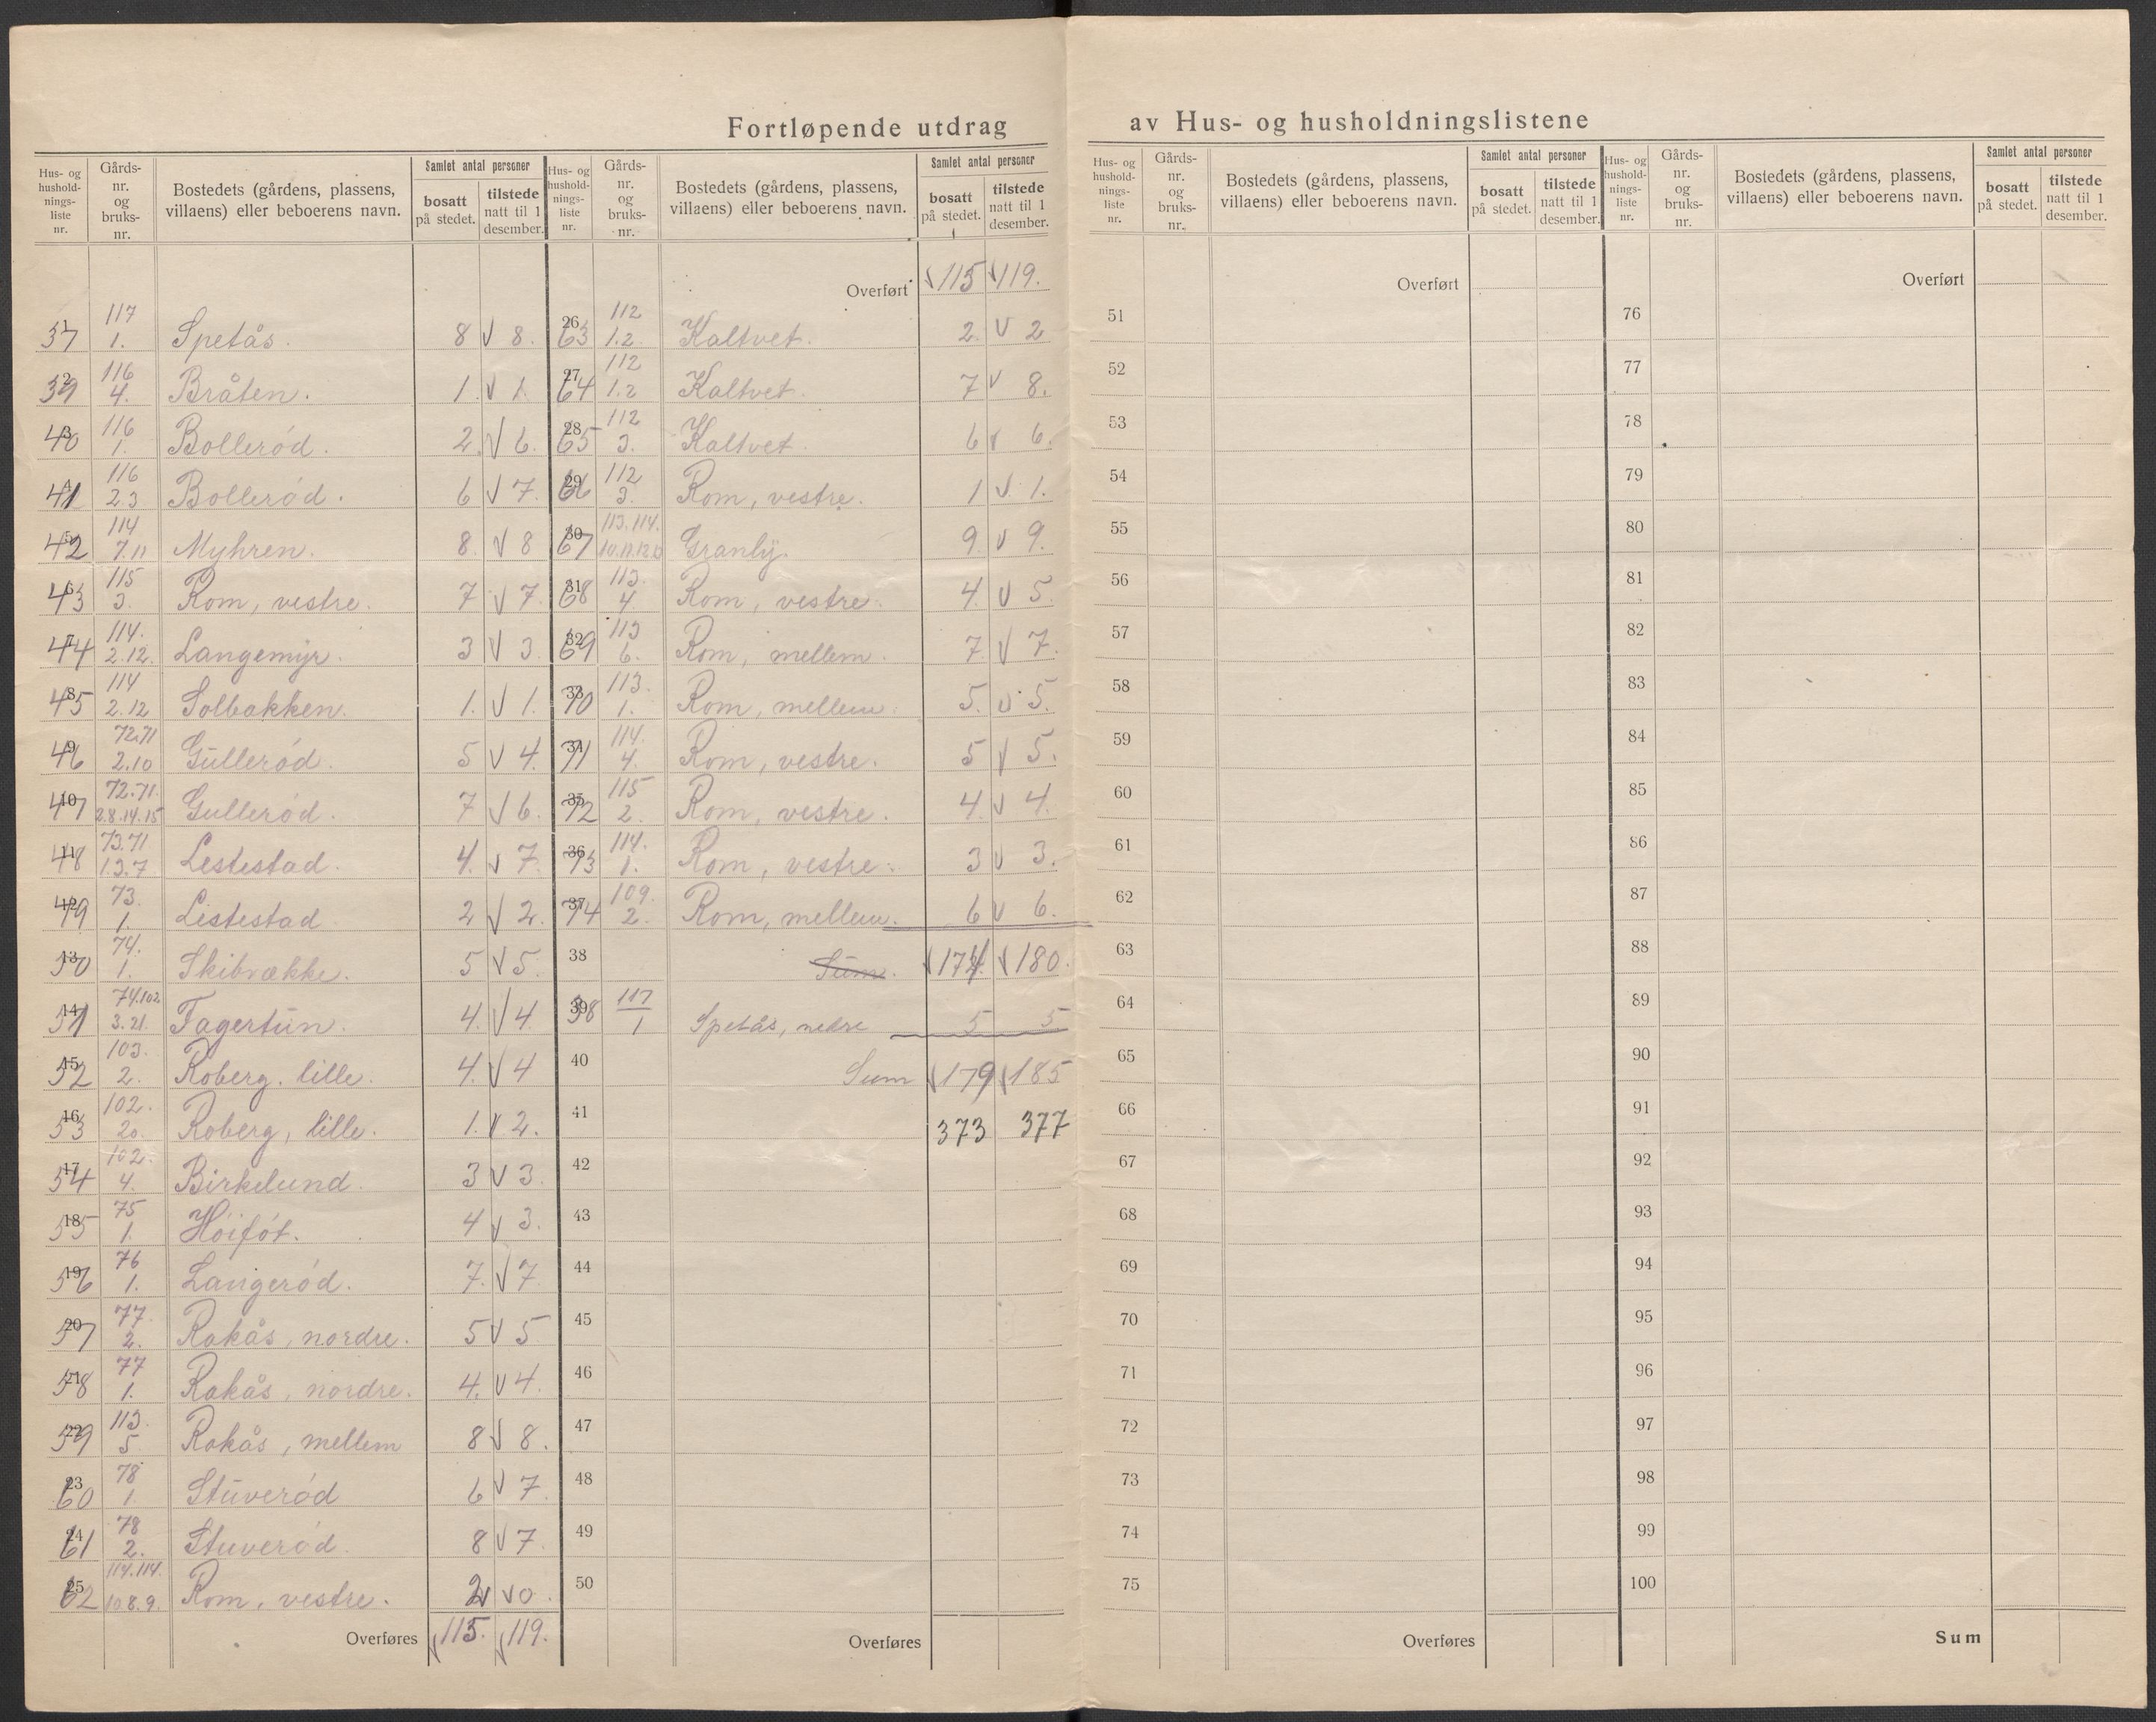 Fortløpende utdrag av Hus- og husholdningslistene
Hus- og hushold-nings-liste nr. | Gårds-nr. og bruks-nr. | Bostedets (gårdens, plassens, villaens) eller beboerens navn. | Samlet antal personer | bosatt på stedet. | tilstede natt til 1 desember.
37 | 117 1. | Spetås. | 8 √ 8.
39 | 116 4. | Bråten. | 1. √ 1.
40 | 116 1. | Bollerød. | 2. √ 6.
41 | 116 2 3 | Bollerød. | 6 √ 7.
42 | 114 7.11 | Myhren. | 8. √ 8
43 | 115 3. | Rom, vestre. | 7 √ 7
44 | 114. 2.12. | Langemyr. | 3 √ 3.
45 | 114 2.12 | Solbakken. | 1. √ 1.
46 | 72.71 2.10 | Gullerød. | 5 √ 4.
47 | 72.71. 2.8.14.15 | Gullerød. | 7 √ 6.
48 | 73.71 1.3.7 | Lestestad. | 4. √ 7.
49 | 73. 1. | Lestestad | 2 √ 2.
50 | 74. 1. | Skibrække. | 5 √ 5.
51 | 74.102 3.21. | Fagertun. | 4. √ 4.
52 | 103. 2. | Roberg. lille. | 4. √ 4
53 | 102. 20. | Roberg, lille. | 1. √ 2.
54 | 102. 4. | Birkelund. | 3 √ 3.
55 | 75 1. | Høifót. | 4 √ 3.
56 | 76 1. | Langerød. | 7. √ 7.
57 | 77. 2. | Rakås, nordre. | 5 √ 5
58 | 77 1. | Rakås, nordre. | 4. √ 4.
59 | 113. 5 | Rakås, mellem | 8 √ 8.
60 | 78 1. | Stuverød | 6 √ 7.
61 | 78 2. | Stuverød. | 8 √ 7.
62 | 114.114. 10 8.9. | Rom, vestre. | 2 √ 0.
Overføres √ 115. √ 119.
Hus- og hushold-nings-liste nr. | Gårds-nr. og bruks-nr. | Bostedets (gårdens, plassens, villaens) eller beboerens navn. | Samlet antal personer | bosatt på stedet. | tilstede natt til 1 desember.
Overført √ 115 √ 119.
26 63 | 112 1.2. | Kaltvet. | 2. √ 2
27 64 | 112 1.2 | Kaltvet. | 7 √ 8.
28 65 | 112 3. | Kaltvet. | 6 √ 6.
29 66 | 112 3. | Rom, vestre. | 1 √ 1.
30 67 | 113.114. | Granly. | 9. √ 9.
31 68 | 113. 4 | Rom, vestre. | 4. √ 5.
32 69 | 113 6. | Rom, mellem. | 7. √ 7.
33 70 | 113. 1. | Rom, mellem. | 5. √ 5.
34 71 | 114. 4. | Rom, vestre. | 5 √ 5.
35 72 | 115 2. | Rom, vestre. | 4. √ 4.
36 73 | 114. 1. | Rom, vestre. | 3 √ 3.
37 74 | 109. 2. | Rom, mellem. | 6 √ 6.
38 Sum. √ 174 √ 180.
39 38 | 117 1 | Spetås, nedre | 5 5
40 Sum √ 179 √ 185
41 373 377
42
43
44
45
46
47
48
49
50
Overføres
Hus- og hushold-nings-liste nr. | Gårds-nr. og bruks-nr. | Bostedets (gårdens, plassens, villaens) eller beboerens navn. | Samlet antal personer | bosatt på stedet. | tilstede natt til 1 desember.
Overført
51
52
53
54
55
56
57
58
59
60
61
62
63
64
65
66
67
68
69
70
71
72
73
74
75
Overføres
Hus- og hushold-nings-liste nr. | Gårds-nr. og bruks-nr. | Bostedets (gårdens, plassens, villaens) eller beboerens navn. | Samlet antal personer | bosatt på stedet. | tilstede natt til 1 desember.
Overført
76
77
78
79
80
81
82
83
84
85
86
87
88
89
90
91
92
93
94
95
96
97
98
99
100
Sum